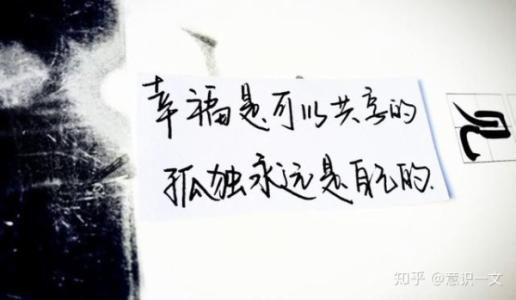 幸福是可以共享的
孤独永远是自己的.
见
知乎 @意识一文